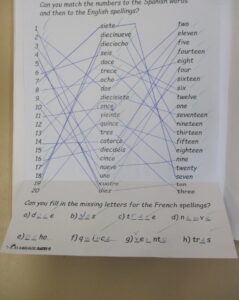 Can you match the numbers to the Spanish words
and then to the English spellings?
1 siete two
2 diecinueve eleven
3 dieciocho five
4 seis fourteen
5 doce eight
6 trece four
7 ocho sixteen
8 dos six
9 diecisiete twelve
10 once one
11 veinte seventeen
12 quince nineteen
13 tres thirteen
14 catorce fifteen
15 dieciséis eighteen
16 cinco nine
17 nueve twenty
18 uno seven
19 cuatro ten
20 diez three
Can you fill in the missing letters for the French spellings?
a) d_ _ e b) c) t _ _ _ e d) n _ _ v _
e) _ _ ho f) q _ _ _ c _ g) v _ _ nt _ h) tr _ s